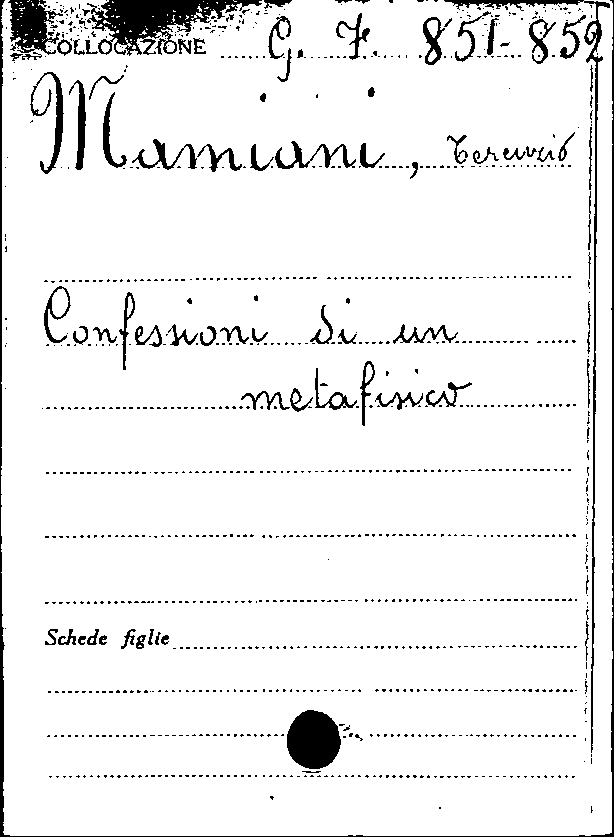 COLLOCAZIONE G. F. 851-852
Mamiani, Terenzio
Confessioni di un
metafisico
Schede figlie